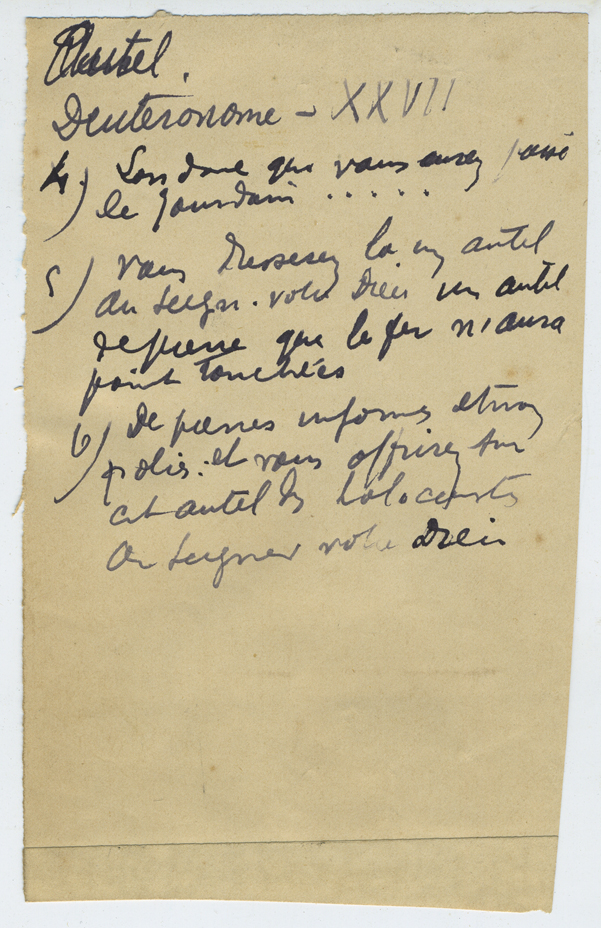 Autel.
Deuteronome - XXVII
4) Lors donc que vous aurez passé
le Jourdain .....
5) vous dresserez là un autel
au Seign. votre Dieu un autel
de pierre que le fer n'aura
point touchées
6) De pierres informes et non
polis. et vous offrirez sur
cet autel des holocaustes
au Seigneur votre Dieu